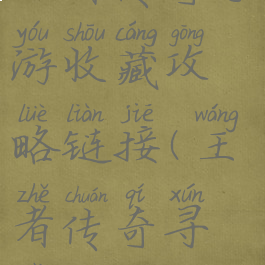 yóu shōu cáng gōng
游收藏攻
lüè liàn jiē wáng
略链接(王
zhě chuán qí xún
者传奇寻